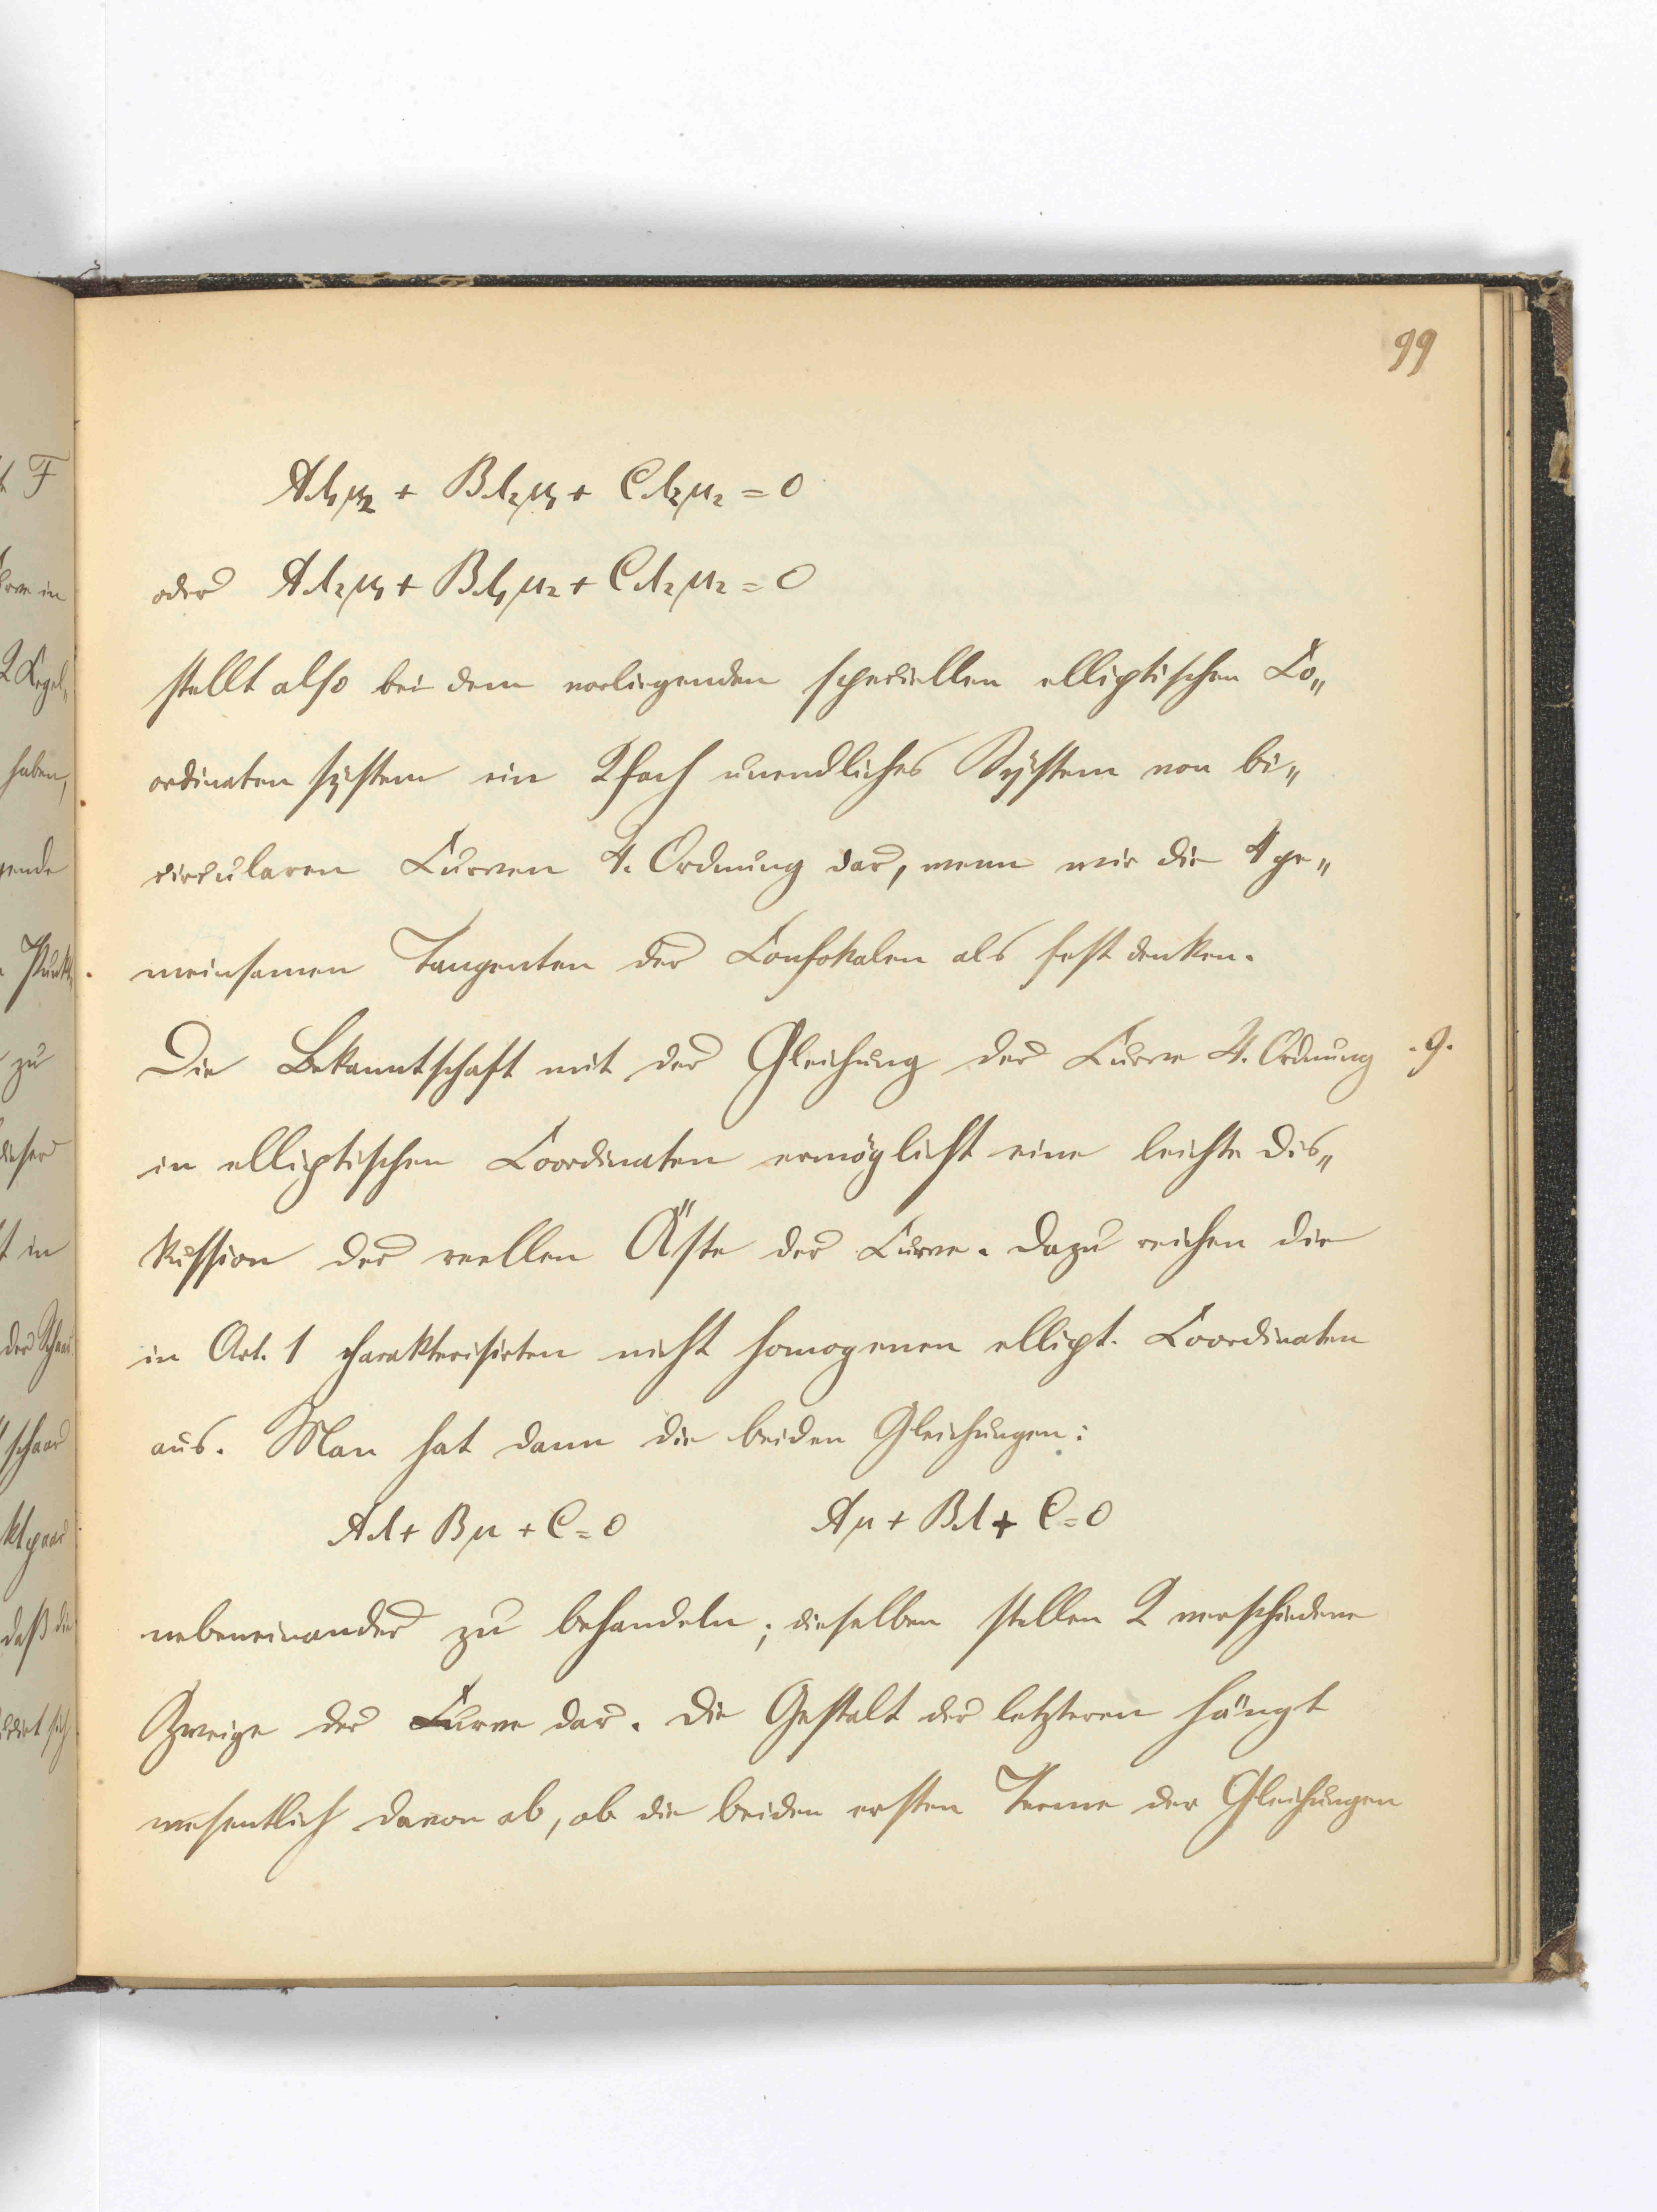 99
Aλ₁μ₂ + Bλ₂μ₁ + Cλ₂μ₂ = 0
oder Aλ₂μ₁ + Bλ₁μ₂ + Cλ₂μ₂ = 0
stellt also bei dem vorliegenden speciellen elliptischen Co„
ordinatensystem ein 2fach unendliches System von bi„
circularen Curven 4. Ordnung dar, wenn wir die 4 ge„
meinsamen Tangenten der Confokalen als fest denken.
Die Bekanntschaft mit der Gleichung der Curve 4. Ordnung .9.
in elliptischen Coordinaten ermöglicht eine leichte Dis„
kussion der reellen Äste der Curve. Dazu reichen die
in Art. 1 charakterisirten nicht homogenen ellipt. Coordinaten
aus. Man hat dann die beiden Gleichungen:
Aλ + Bμ + C = 0 Aμ + Bλ + C = 0
nebeneinander zu behandeln; dieselben stellen 2 verschiedene
Zweige der Curve dar. Die Gestalt der letzteren hängt
wesentlich davon ab, ob die beiden ersten Terme der Gleichungen
t F
in
2 Kegel„
haben,
gende
Punkt„
zu
dieser
t in
der Schaar
schaar
ktpaar
daß die
sich